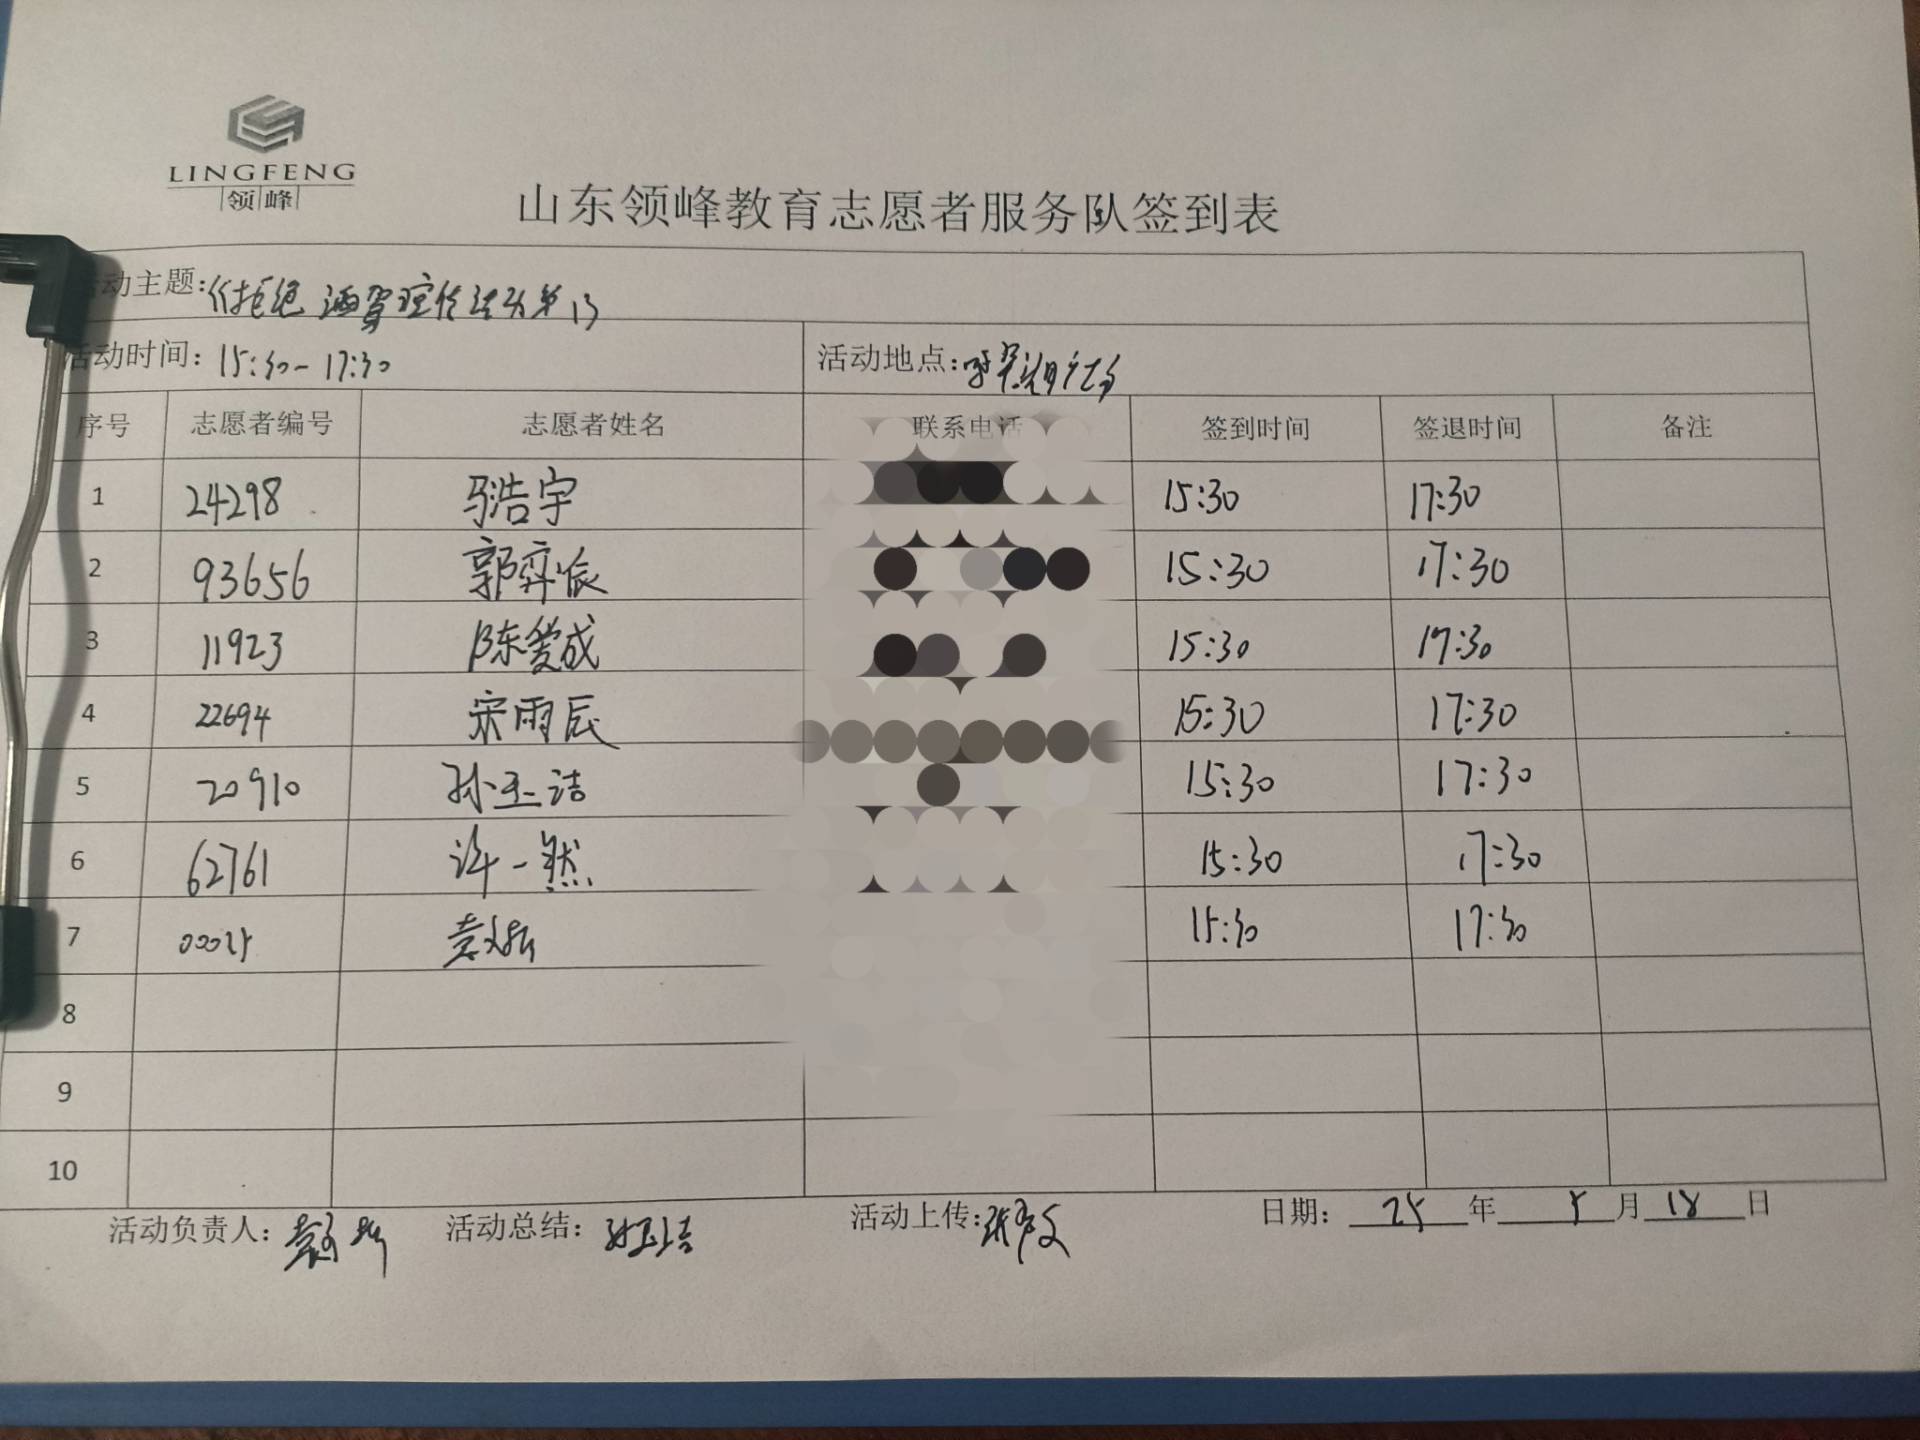 LINGFENG
领峰
山东领峰教育志愿者服务队签到表
活动主题:《拒绝酒驾宣传活动第13
活动时间: 15:30-17:30 活动地点:
序号 志愿者编号 志愿者姓名 联系电话 签到时间 签退时间 备注
1 24298 马浩宇 15:30 17:30
2 93656 郭弈辰 15:30 17:30
3 11923 陈爱成 15:30 17:30
4 22694 宋雨辰 15:30 17:30
5 20910 孙玉洁 15:30 17:30
6 62761 许一然 15:30 17:30
7 00025 15:30 17:30
8
9
10
活动负责人: 活动总结: 孙玉洁 活动上传: 日期: 25年5月18日